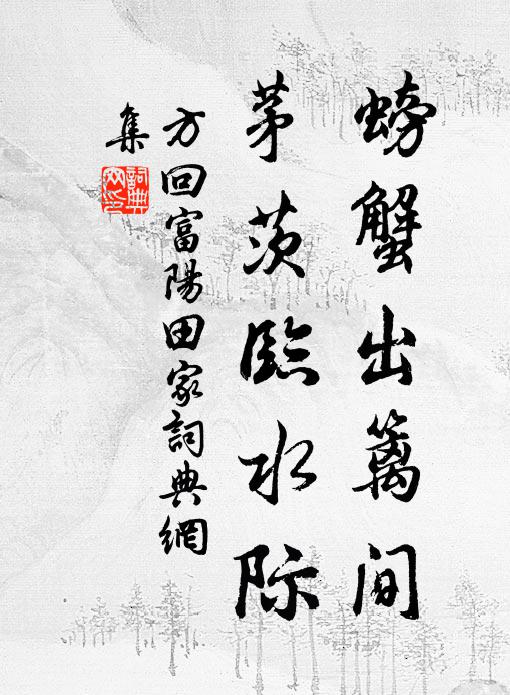 螃蟹出篱间
茅茨臨水际
方回富陽田家詞典網
集
詞典網印